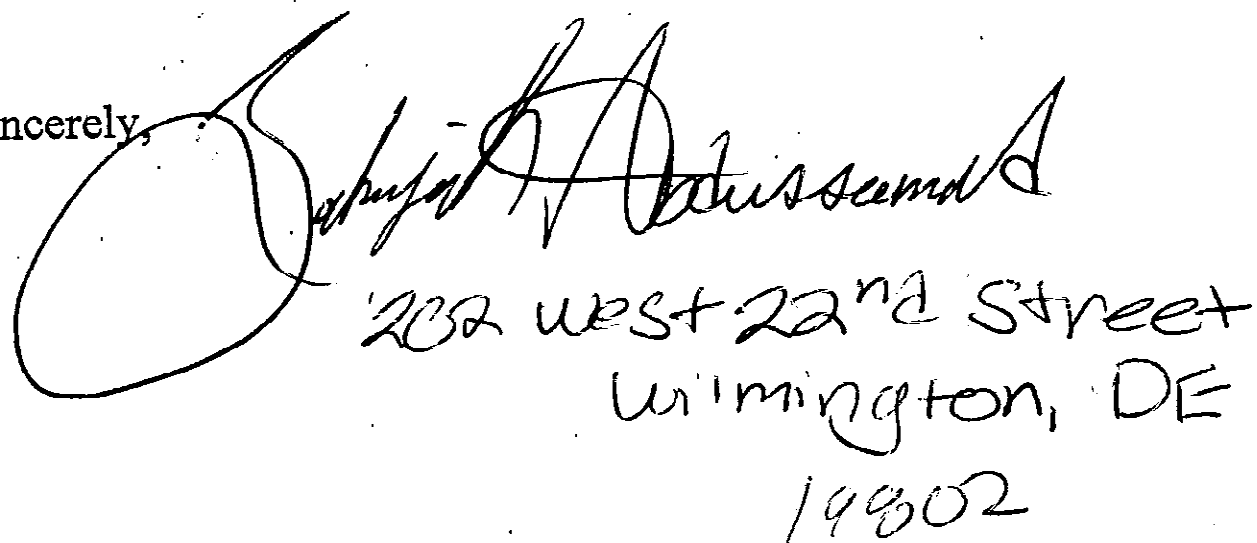 ncerely,
202 West 22nd Street
Wilmington, DE
19802